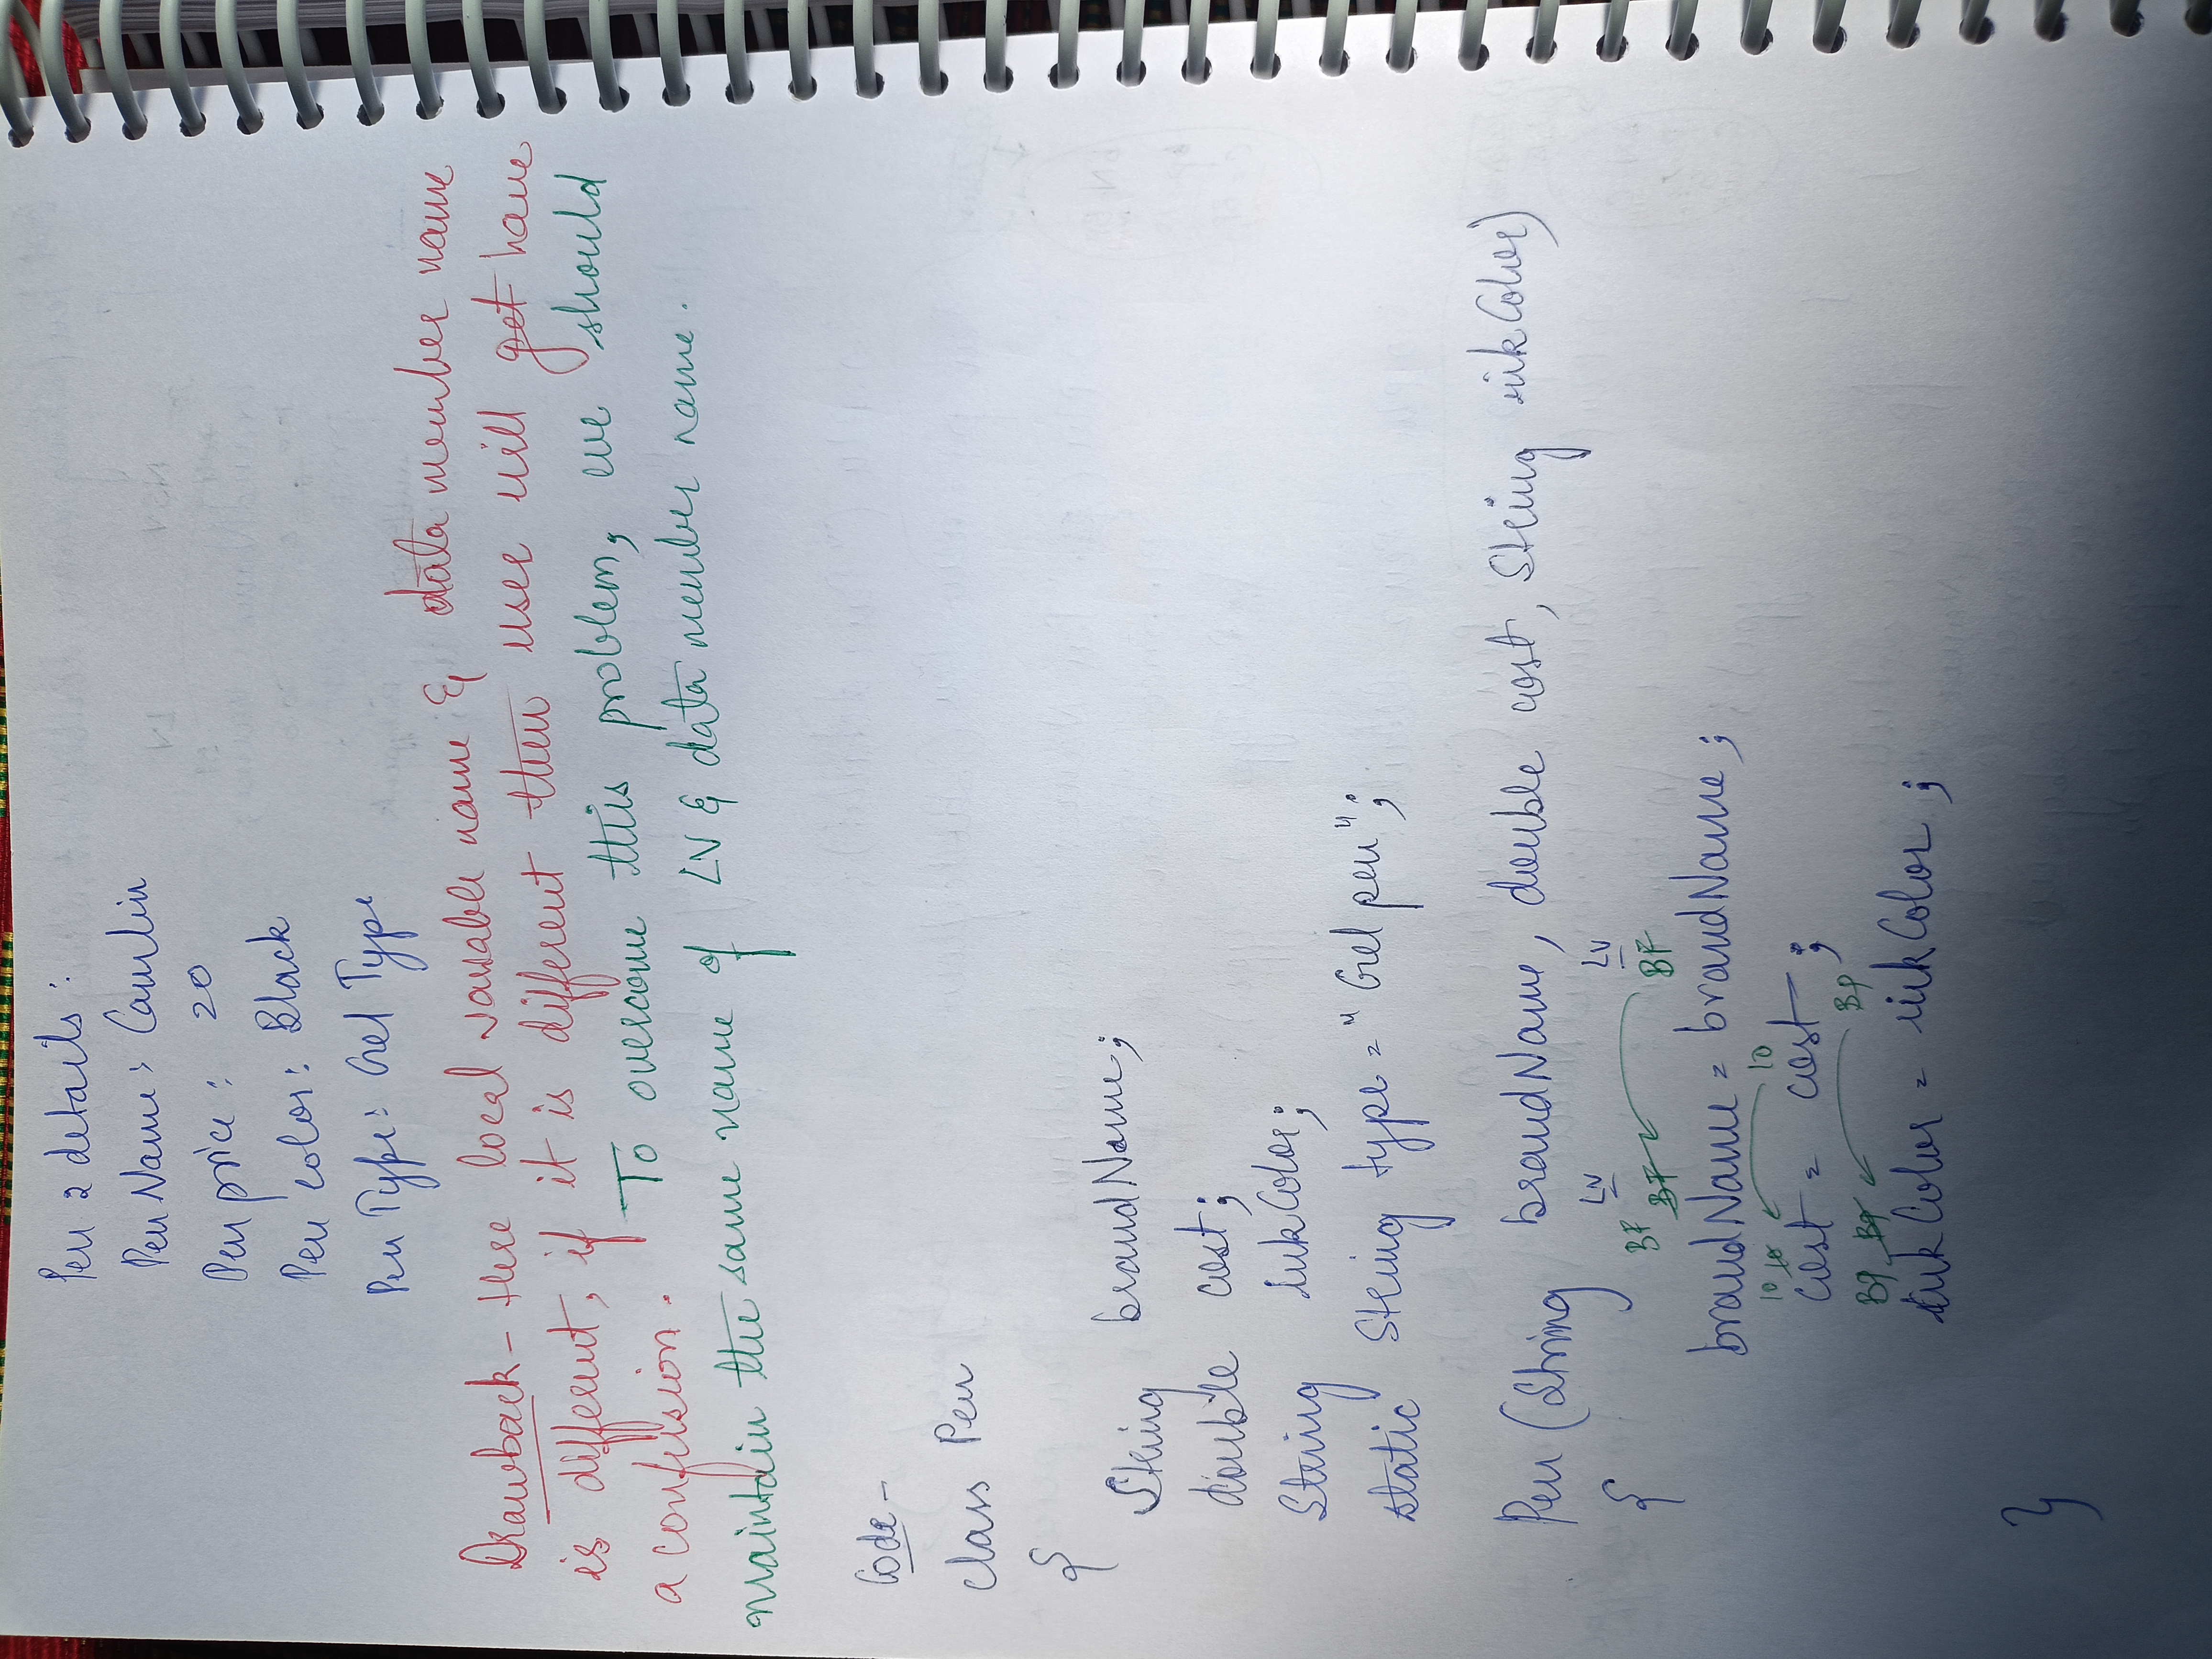 Pen 2 details :
Pen Name : Camlin
Pen price : 20
Pen color : Black
Pen Type : Gel Type
Drawback - Here local variable name & data member name
is different, if it is different then user will get have
a confusion. To overcome this problem, we should
maintain the same name of LV & data member name.
Code -
class Pen
{
String brandName;
double cost;
String inkColor;
static String type = "Gel pen";
Pen (String brandName, double cost, String inkColor)
{
LV LV
BF BF BF
brandName = brandName ;
10 10 10
cost = cost ;
BP BP BP
inkColor = inkColor ;
}